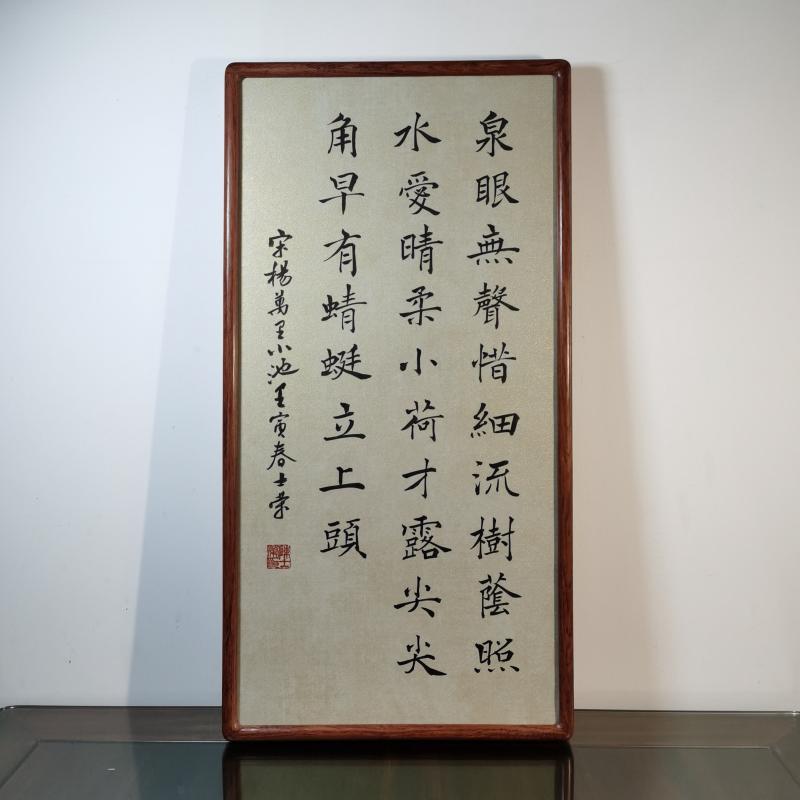 泉眼無聲惜細流樹蔭照
水愛晴柔小荷才露尖尖
角早有蜻蜓立上頭
宋楊萬里小池壬寅春士荣